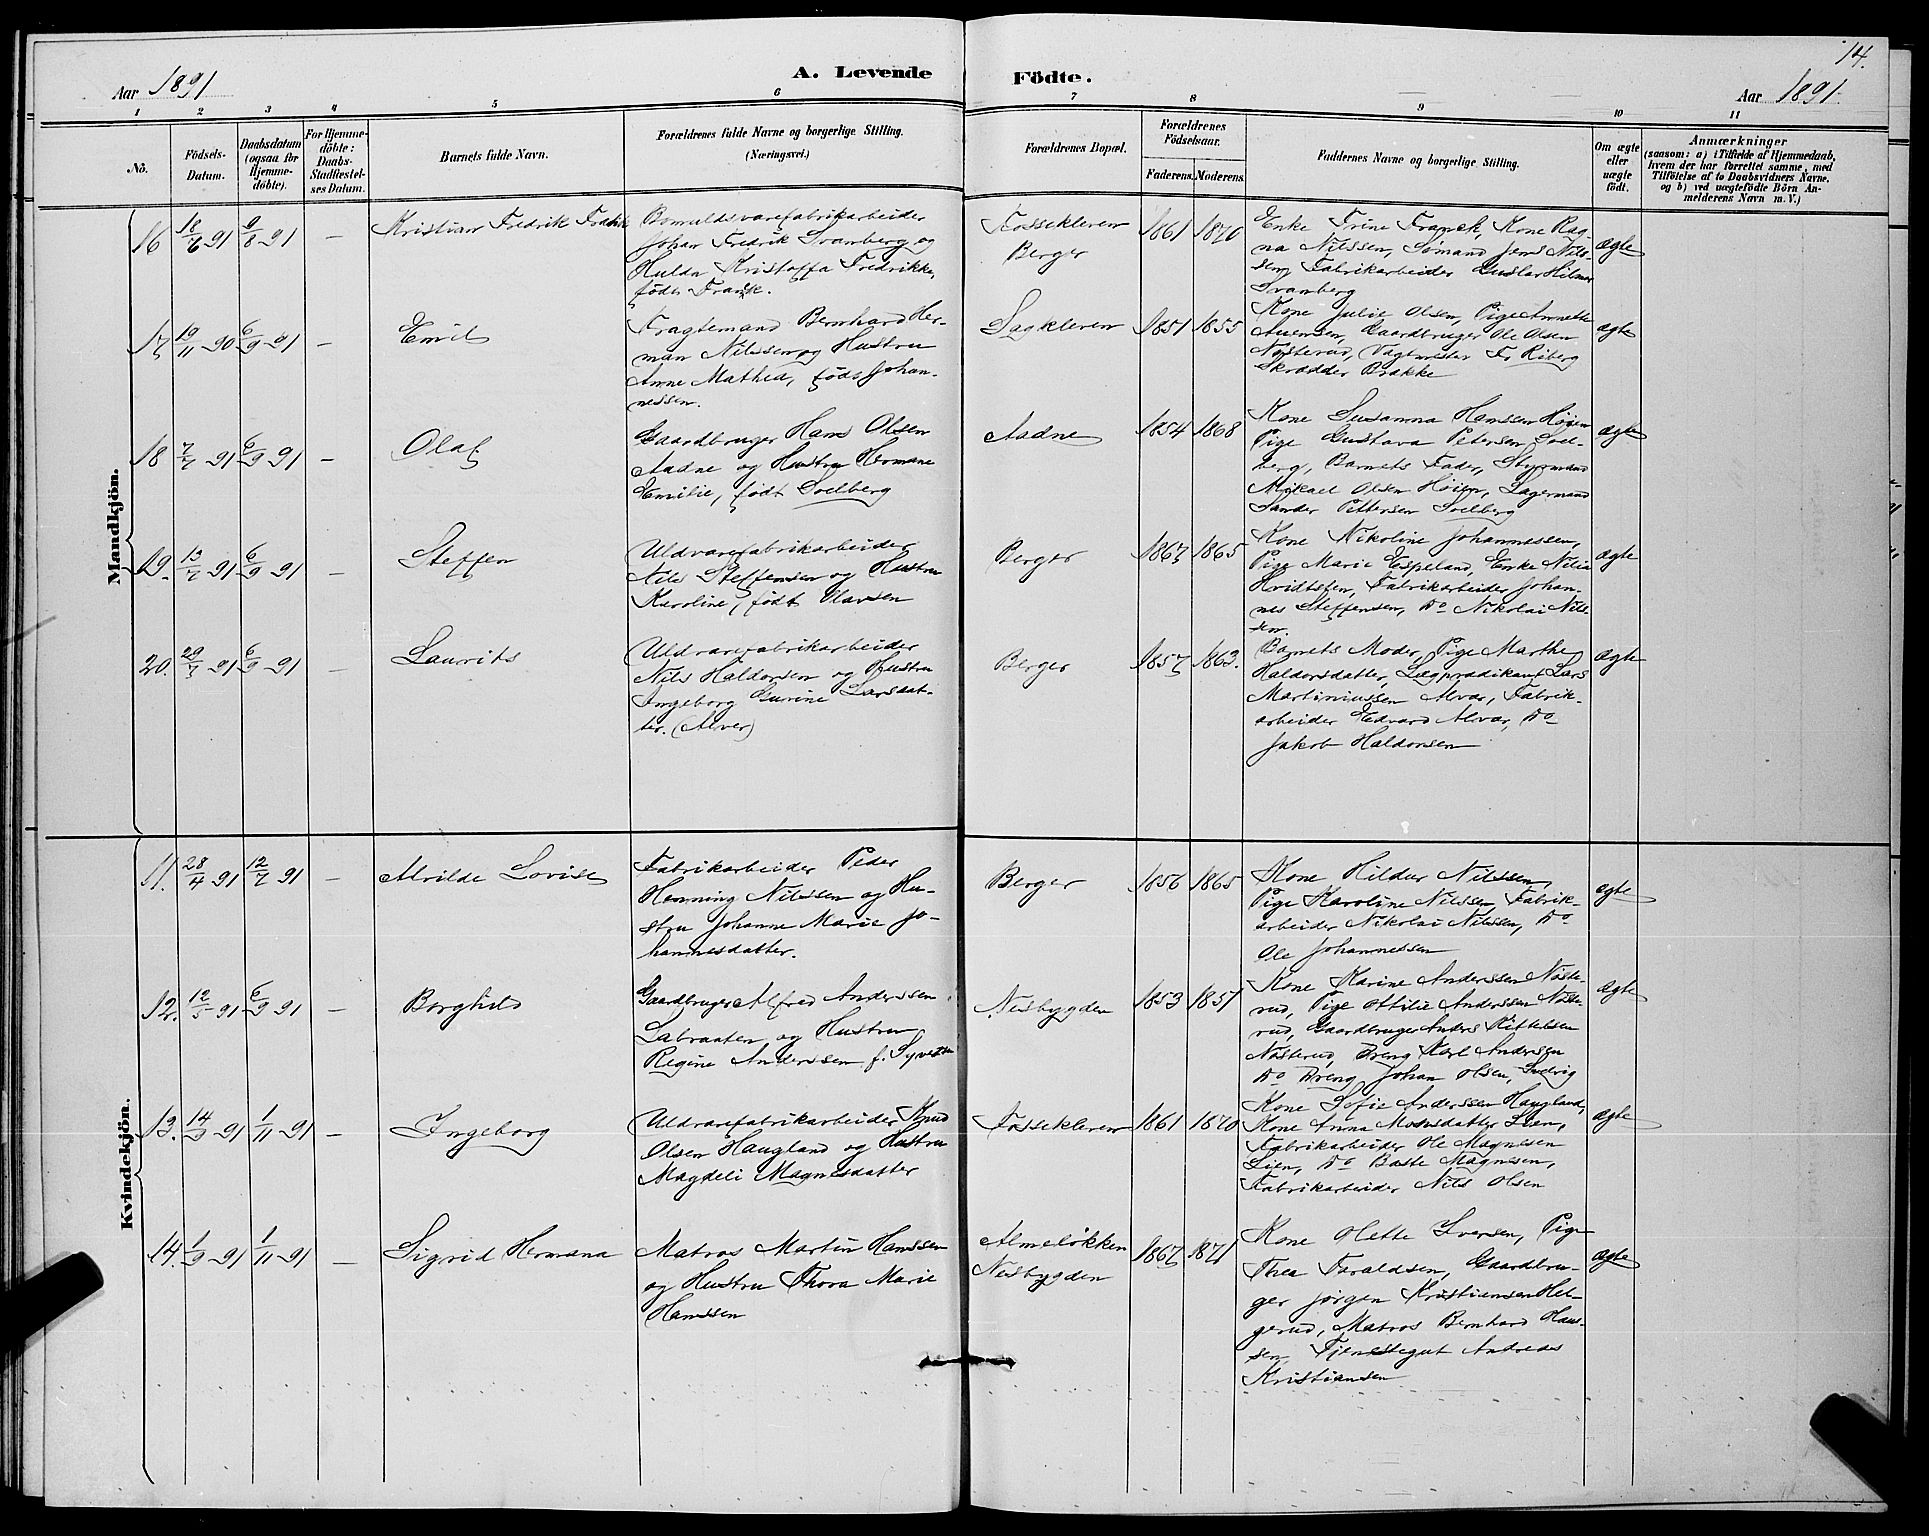 14.
Aar 1891
A. Levende
Födte.
Aar 1891
1 2 3 4 5 6 7 8 9 10 11
No.
Födsels-
Datum.
Daabsdatum
(ogsaa for
Hjemme-
döbte).
For Hjemme-
döbte:
Daabs-
Stadfæstel-
ses Datum.
Barnets fulde Navn.
Forældrenes fulde Navne og borgerlige Stilling.
(Næringsvei.)
Forældrenes Bopæl.
Forældrenes
Födselsaar.
Faderens.
Moderens.
Faddernes Navne og borgerlige Stilling.
Om ægte
eller
uægte
födt.
Anmærkninger
(saasom: a) i Tilfælde af Hjemmedaab,
hvem der har forrettet samme, med
Tilföielse af to Daabsvidners Navne,
og b) ved uægtefödte Börn An-
melderens Navn m. V.)
Mandkjön.
16 18/6 91 9/8 91
Kristian Fredrik Franck
Bomuldsvarefabrikarbeider
Johan Fredrik Svanberg og
Huldn Kristoffa Fredrikke,
födt Franck.
Fossekleven
Berger
1861 1870
Enke Trine Franck, Kone Rag-
na Nilssen, Sömand Jens Nils-
sen, Fabrikarbeider Gustav Hilmar
Svanberg
Ægte
17 19/11 90 6/9 91 –
Emil
Fragtemand Bernhard Her-
man Nilssen og Hustru
Anne Mathea, föds Johan-
nessen.
Sagkleven
1851 1855
Kone Julie Olsen, Pige Annette
Auensen, Gaardbruger Ole Olsen
Nösterud, Vagtmester Fr. Riberg
Skrædder Brække
Ægte
18 7/7 91 6/9 91 –
Olaf
Gaardbruger Hans Olsen
Aadne og Hustru Hermane
Emilie, födt Solberg
Aadne
1854 1868
Kone Susanna Hanssen Höien
Pige Gustava Petersen Sol-
berg, Barnets Fader, Styrmand
Mikael Olsen Höien, Lagermand
Sander Pettersen Solberg
Ægte
19. 13/7 91 6/9 91 –
Steffen
Uldvarefabrikarbeider
Nils Steffensen og Hustru
Karoline, födt Olavsen
Berger
1867 1865
Kone Nikoline Johannessen,
Pige Marie Espeland, Enke Nilia
Hvidtsten, Fabrikarbeider Johan-
nes Steffensen, Do Nikolai Nils-
sen.
Ægte
20. 29/7 91 6/9 91 –
Laurits
Uldvarefabrikarbeider
Nils Haldorsen og Hustru
Ingeborg Gurine Larsdat-
ter. (Alver)
Berger
1857 1863.
Barnets Moder, Pige Marthe
Haldorsdatter, Lægprædikant Lars
Martiniussen Alvær, Fabrik-
arbeider Edvard Alvær, Do
Jakob Haldorsen
Ægte
Kvindekjön.
11. 28/4 91 12/7 91 –
Alvilde Lovise
Fabrikarbeider Peder
Henning Nilssen og Hu-
stru Johanne Marie Jo-
hannesdatter.
Berger
1856 1865
Kone Hildur Nilssen,
Pige Karoline Nilssen, Fabrik-
arbeider Nikolai Nilssen, Do
Ole Johannessen
Ægte
12. 12/5 91 6/9 91 –
Borghild
Gaardbruger Alfred Anderssen,
Labraaten, og Hustru
Regine Anderssen f. Syvertsen
Nesbygden
1853 1857
Kone Karine Anderssen Nöste-
rud, Pige Ottilie Anderssen Nöste-
rud, Gaardbruger Anders Kittelsen
Nösterud, Dreng Karl Andersen
Do Dreng Johan Olsen, Snevrig
Ægte
13. 14/9 91 1/11 91 –
Ingeborg
Uldvarefabrikarbeider Knud
Olsen Haugland og Hustru
Magdeli Magnesdatter
Fossekleven
1861 1870
Kone Sofie Anderssen Haugland,
Kone Anna Monsdatter Lien,
Fabrikarbeider Ole Magnesen
Lien, Do Baste Magnesen,
Fabrikarbeider Nils Olsen
Ægte
14. 1/9 91 1/11 91 –
Sigrid Hermana
Matros Martin Hanssen
og Hustru Thora Marie
Hanssen
Almelökken
Nesbygden
1867 1871
Kone Olette Iversen, Pige
Thea Faraldsen, Gaardbru-
ger Jörgen Kristiansen Hel-
gerud, Matros Bernhard Hans-
sen Tjenestegut Andreas
Kristiansen
Ægte